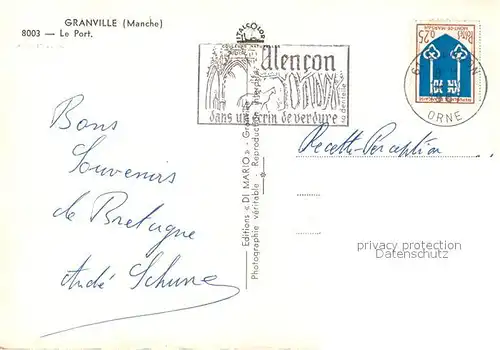 GRANVILLE (Manche)
8003 — Le Port.
Bons
Souvenirs
de Bretagne
André
Editions « DI MARIO » - Granville
Photographie véritable - Reproduction interdite
Alençon
dans un écrin de verdure
la dentelle
0,25
ORNE
Recette-Perception
privacy protection
Ansichtskartenversand.com